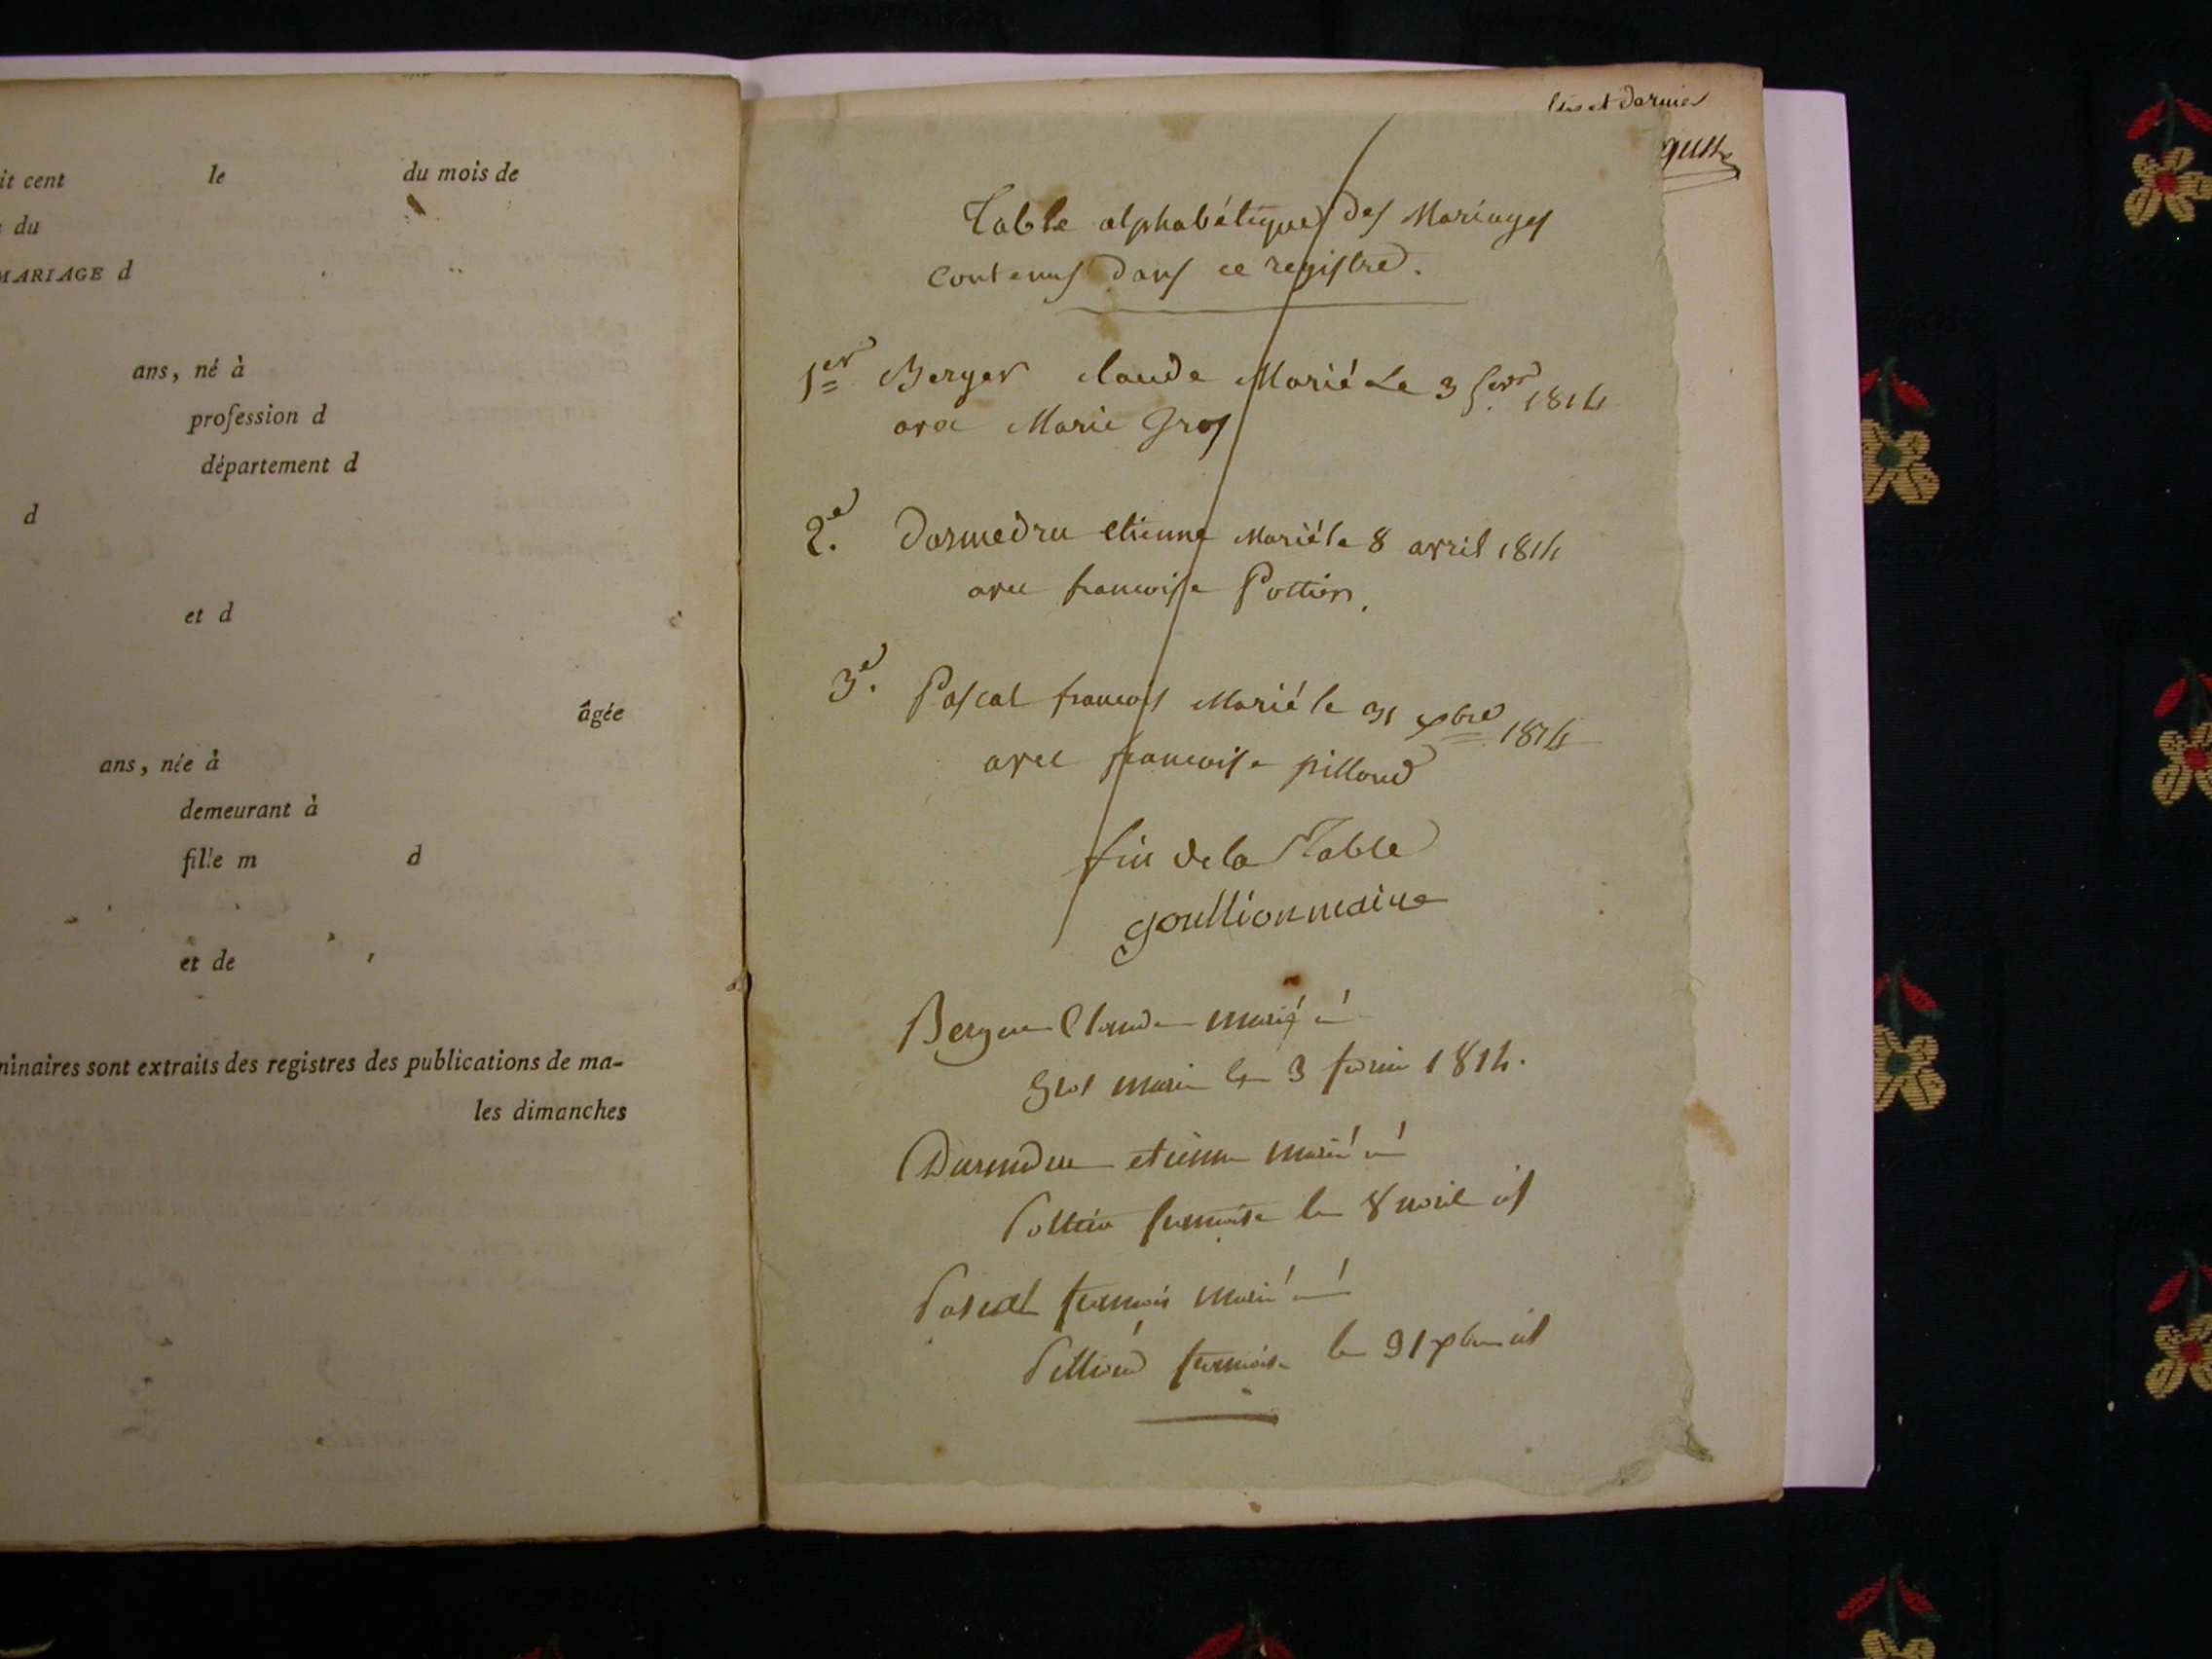 it cent le du mois de
du
MARIAGE d
ans, né à
profession d
département d
d
et d
âgée
ans, née à
demeurant à
fille m d
et de
minaires sont extraits des registres des publications de ma-
les dimanches
et dernier
Table alphabétique des Mariages
Contenus dans ce registre.
1er Berger Claude Marié Le 3 fevr 1814
avec Marie Gros
2.e Dormedru etienne Marié le 8 avril 1814
avec francoise Pottier.
3.e Pascal francois Marié le 31 xbre 1814
avec francoise pilloud
fin de la Table
goullion maire
Berger Claude marié à
Gros marie le 3 fevrier 1814.
Durmedru etienne marié à
Pottier francoise le 8 avril id
Pascal francois marié à
Pilloud francoise le 31 xbre id